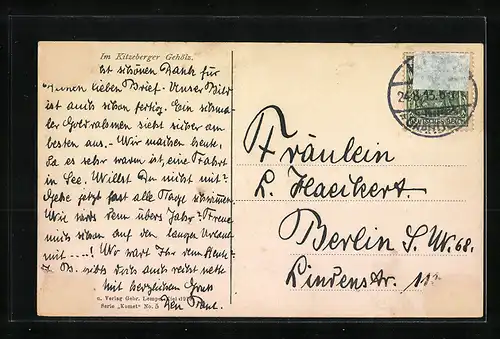 Im Kitzeberger Gehölz.
ist schönen Dank für
lieben Brief. Unser Bild
ist auch schon fertig. Ein schmaler
Goldrahmen sieht sicher am
besten aus. - Wir machen heute,
da es sehr warm ist, eine Fahrt
in See. Willst Du nicht mit?
Gehe jetzt fast alle Tage schwimmen
Wie wärs denn übers Jahr? Freue
mich schon auf den langen Urlaub
mit ....! Wo wart Ihr denn heute?
gibts doch auch recht nette
mit herzlichem Gruß
Dein Paul.
u. Verlag Gebr. Lempe, Kiel
Serie „Komet“ No. 5
Fräulein
L. Haeckert
Berlin S.W. 68.
Lindenstr.